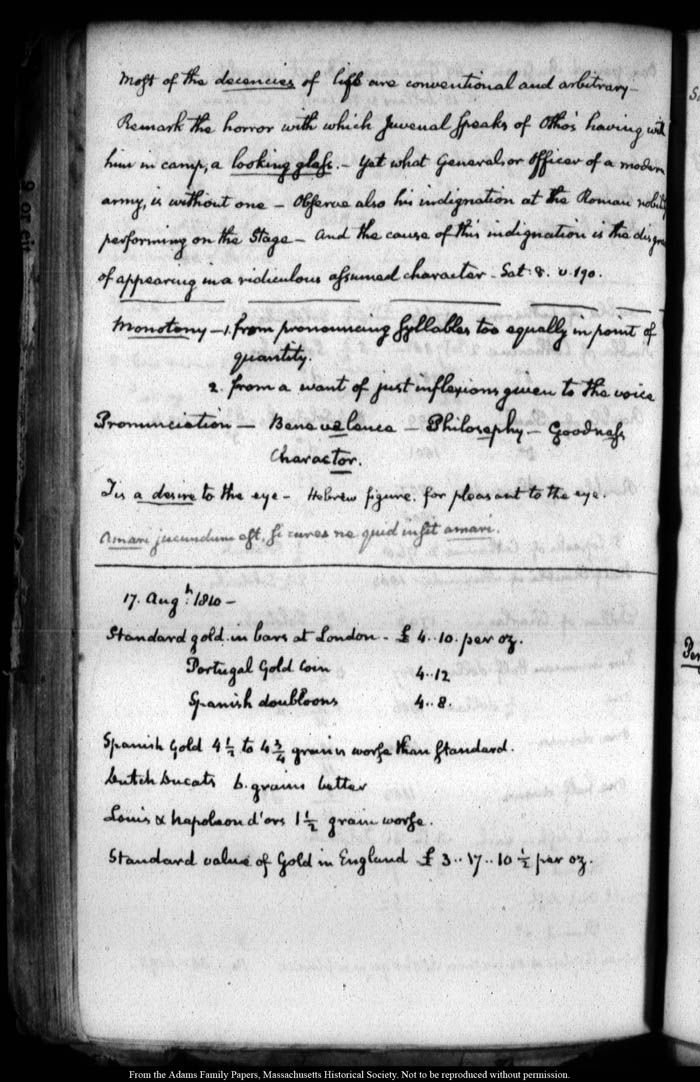 Most of the decencies of life are conventional and arbitrary—
Remark the horror with which Juvenal speaks of Otho's having with
him in camp, a looking glass. — Yet what General or Officer of a modern
army, is without one — Observe also his indignation at the Roman nobility
performing on the Stage — And the cause of this indignation is the disgrace
of appearing in a ridiculous assumed character — Sat: 8. v. 190.
Monotony — 1. from pronouncing syllables too equally in point of
quantity.
2. from a want of just inflexions given to the voice
Pronunciation — Benevelence — Philosephy — Goodness
Charactor.
Tis a desire to the eye — Hebrew figure. for pleasant to the eye.
Amari jucundum est, si cures ne quid insit amari.
17. Augt. 1810 —
Standard gold. in bars at London — £ 4..10. per oz.
Portugal Gold Coin 4..12
Spanish doubloons 4..8.
Spanish Gold 4 1/2 to 4 3/4 grains worse than standard.
Dutch Ducats 6. grains better
Louis & Napoleon d'ors 1 1/2 grain worse.
Standard value of Gold in England £ 3..17..10 1/2 per oz.
From the Adams Family Papers, Massachusetts Historical Society. Not to be reproduced without permission.